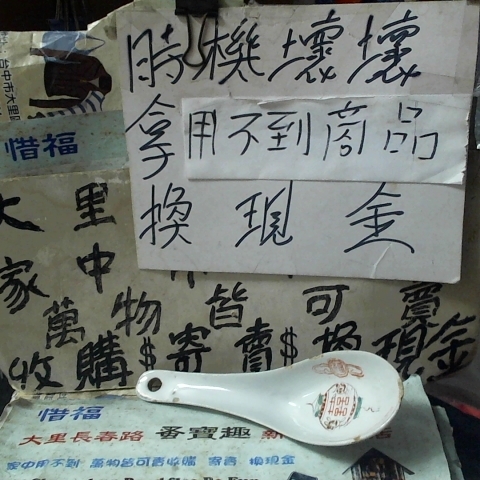 時機壞壞
拿用不到商品
換現金
台中市大里
惜福
大里
家中
可賣
萬物皆
收購$寄賣$換現金
惜福
大里長春路 蚤寶趣
家中用不到 萬物皆可賣收購 寄售 換現金